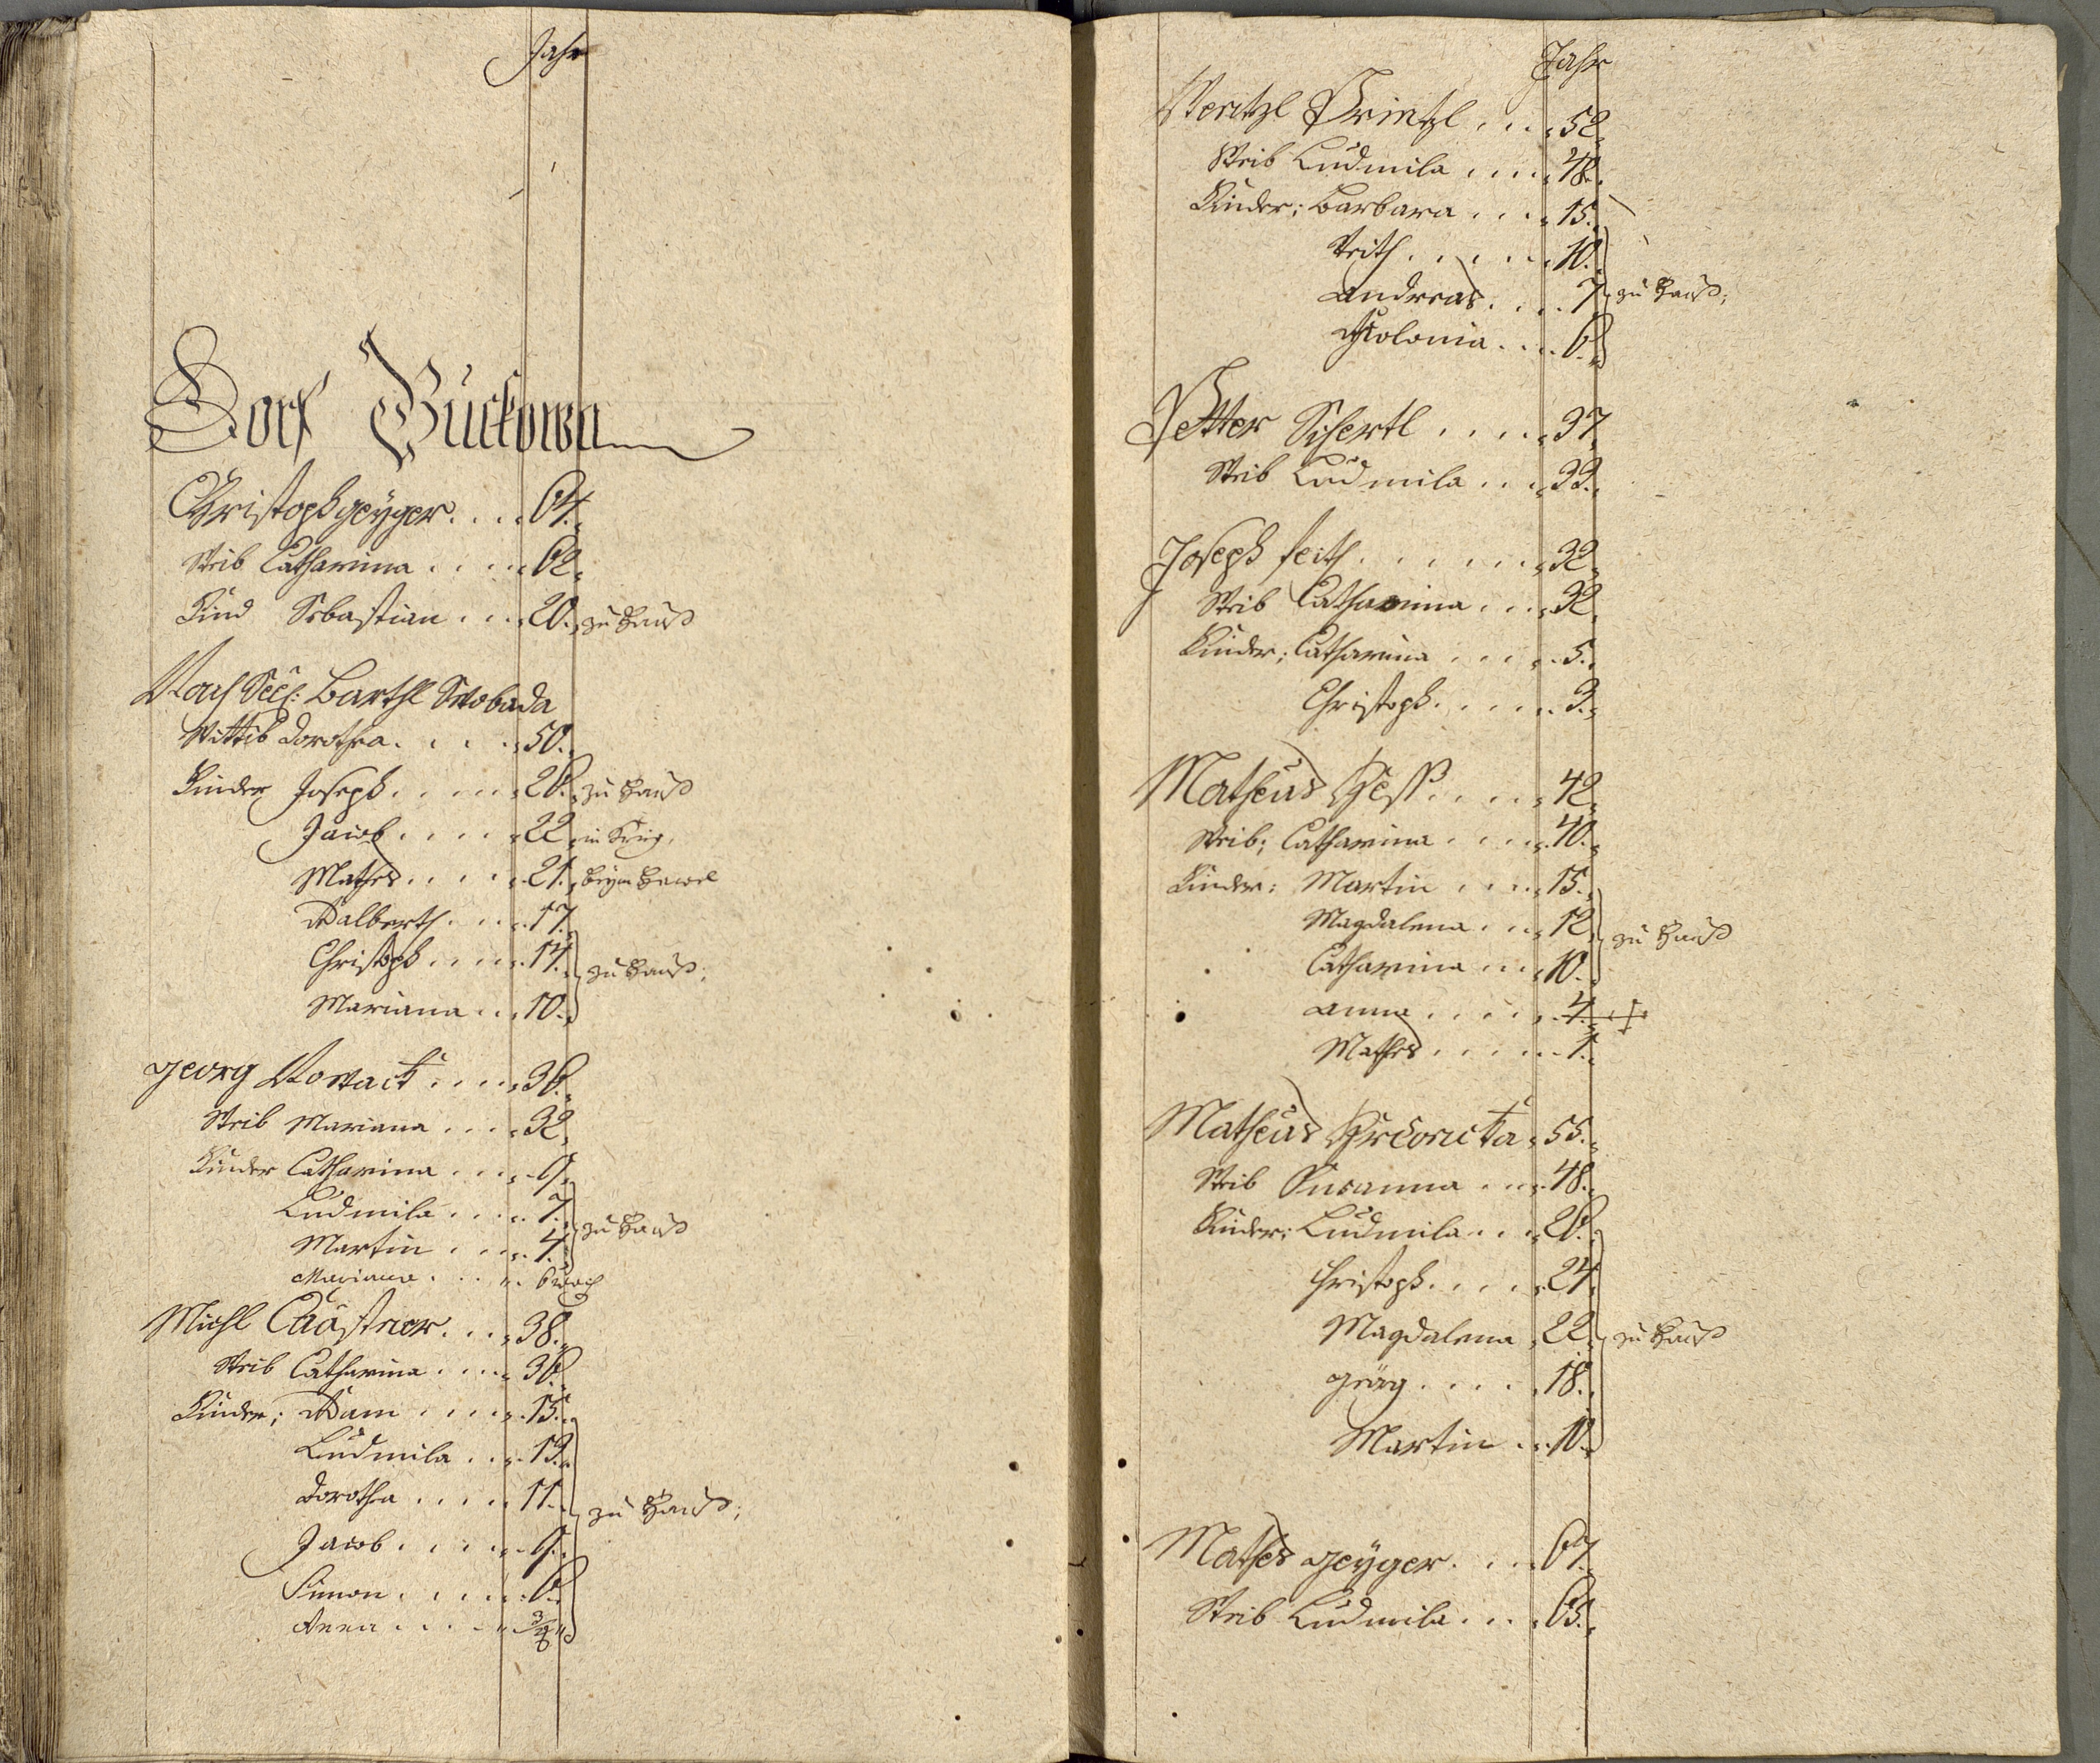 Jahr
Dorf Buckowa
Christoph geÿger . . . . 64.
Weib Catharina . . . . 62.
Kind Sebastian . . . 20. zu Hauß
Nach Seel: Barthl Wobada
Wittib Dorothea . . . . 50.
Kinder Joseph . . . . 26. zu Hauß
Jacob . . . . 22.
Mathes . . . . 21. beÿm
Adalberth . . . 17.
Christoph . . . . 14. zu Hauß;
Mariana . . . 10.
georg Novack . . . . 36.
Weib Mariana . . . . 32.
Kinder Catharina . . . . 9.
Ludmila . . . . 7.
Martin . . . . 4. zu Hauß
Mariana . . . 6 woch
Michl Cästner . . . 38.
Weib Catharina . . . . 36.
Kinder; Adam . . . . 15.
Ludmila . . . 13.
Dorothea . . . . 11. zu Hauß;
Jacob . . . . 9.
Simon . . . . 6.
Anna . . . . 3/4
Jahr
Wentzl Printzl . . . . 52.
Weib Ludmila . . . . 48.
Kinder; Barbara . . . . 15.
Veith . . . . . 10.
Andreas . . . . 7. zu Hauß;
Apolonia . . . . 6.
Petter Schertl . . . . 37.
Weib Ludmila . . . 33.
Joseph feith . . . . . . 32.
Weib Catharina . . . 32.
Kinder; Catharina . . . . 5.
Christoph . . . . . 3.
Matheus Heß . . . . 42.
Weib; Catharina . . . . 40.
Kinder: Martin . . . . 15.
Magdalena . . . 12. zu Hauß
Catharina . . . 10.
Anna . . . . . 4. †
Mathes . . . . . 1.
Matheus 55.
Weib Susanna . . . . 48.
Kinder: Ludmila . . . 26.
Christoph . . . . 24.
Magdalena . 22. zu Hauß
georg . . . . 18.
Martin . . . 10.
Mathes geÿger . . . . 67.
Weib Ludmila . . . . 63.